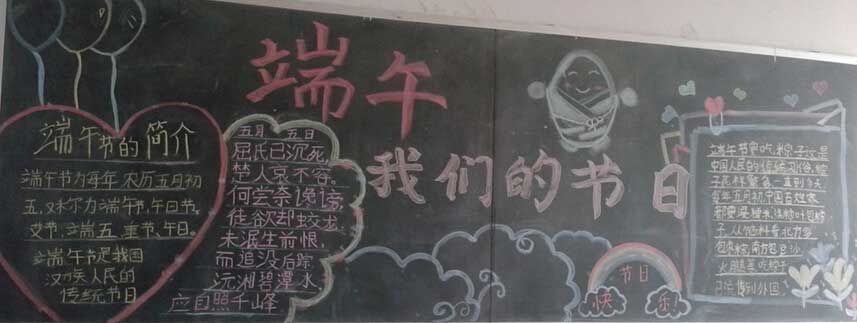 端午
我们的节日
端午节的简介
端午节为每年农历五月初
五,又称为端午节,午日节,
艾节,端五,重节,午日。
端午节是我国
汉族人民的
传统节日
五月五日
屈氏已沉死
楚人哀不容。
何尝奈谗谤
徒欲却蛟龙
未泯生前恨,
而追没后踪
沅湘碧潭水
应自照千峰
节日
快乐!
端午节
中国人民的传统习俗,粽
一直到今天
每年五月初,中国百姓家
子,从馅料看,北方多